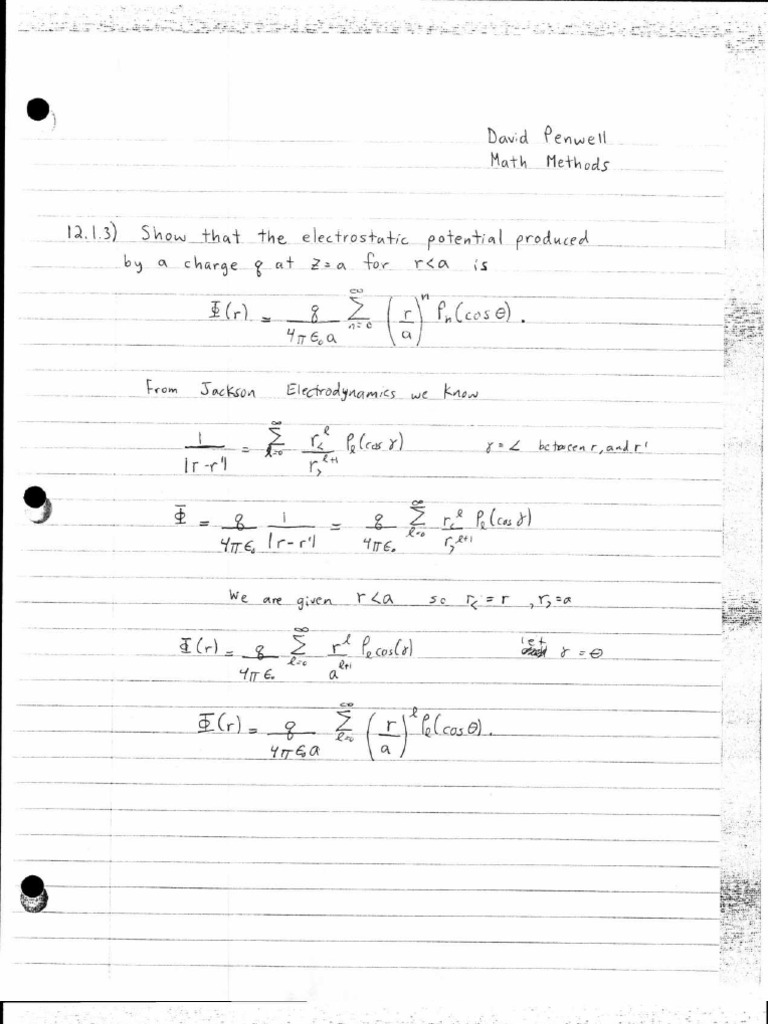 David Penwell
Math Methods
12.1.3) Show that the electrostatic potential produced
by a charge q at z=a for r<a is
Φ(r) = q/(4πε₀a) ∑_{n=0}^{∞} (r/a)^n Pₙ(cosθ).
From Jackson Electrodynamics we know
1/|r-r'| = ∑_{ℓ=0}^{∞} r_<^ℓ/r_>^{ℓ+1} P_ℓ(cos γ) γ = ∠ between r, and r'
Φ = q/(4πε₀) 1/|r-r'| = q/(4πε₀) ∑_{ℓ=0}^{∞} r_<^ℓ/r_>^{ℓ+1} P_ℓ(cos γ)
We are given r<a so r_< = r , r_> = a
Φ(r) = q/(4πε₀) ∑_{ℓ=0}^{∞} r^ℓ/a^{ℓ+1} P_ℓ cos(γ) let γ = θ
Φ(r) = q/(4πε₀a) ∑_{ℓ=0}^{∞} (r/a)^ℓ P_ℓ(cosθ).